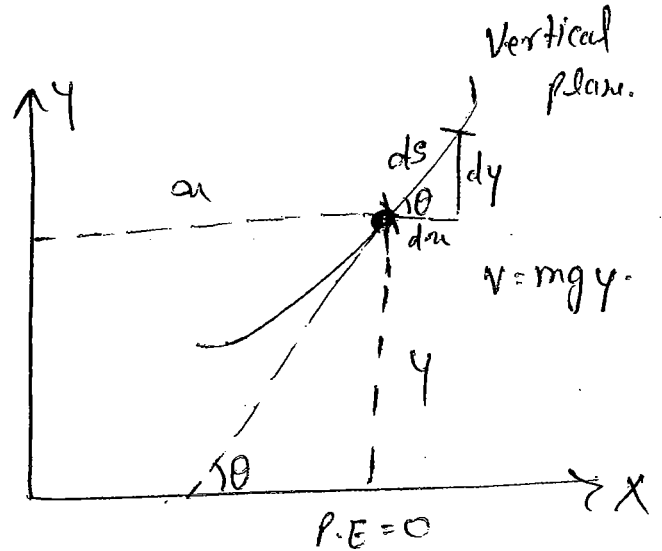 Vertical
plane.
Y
x
ds
dy
θ
dx
V = mgy.
y
θ
X
P.E = 0